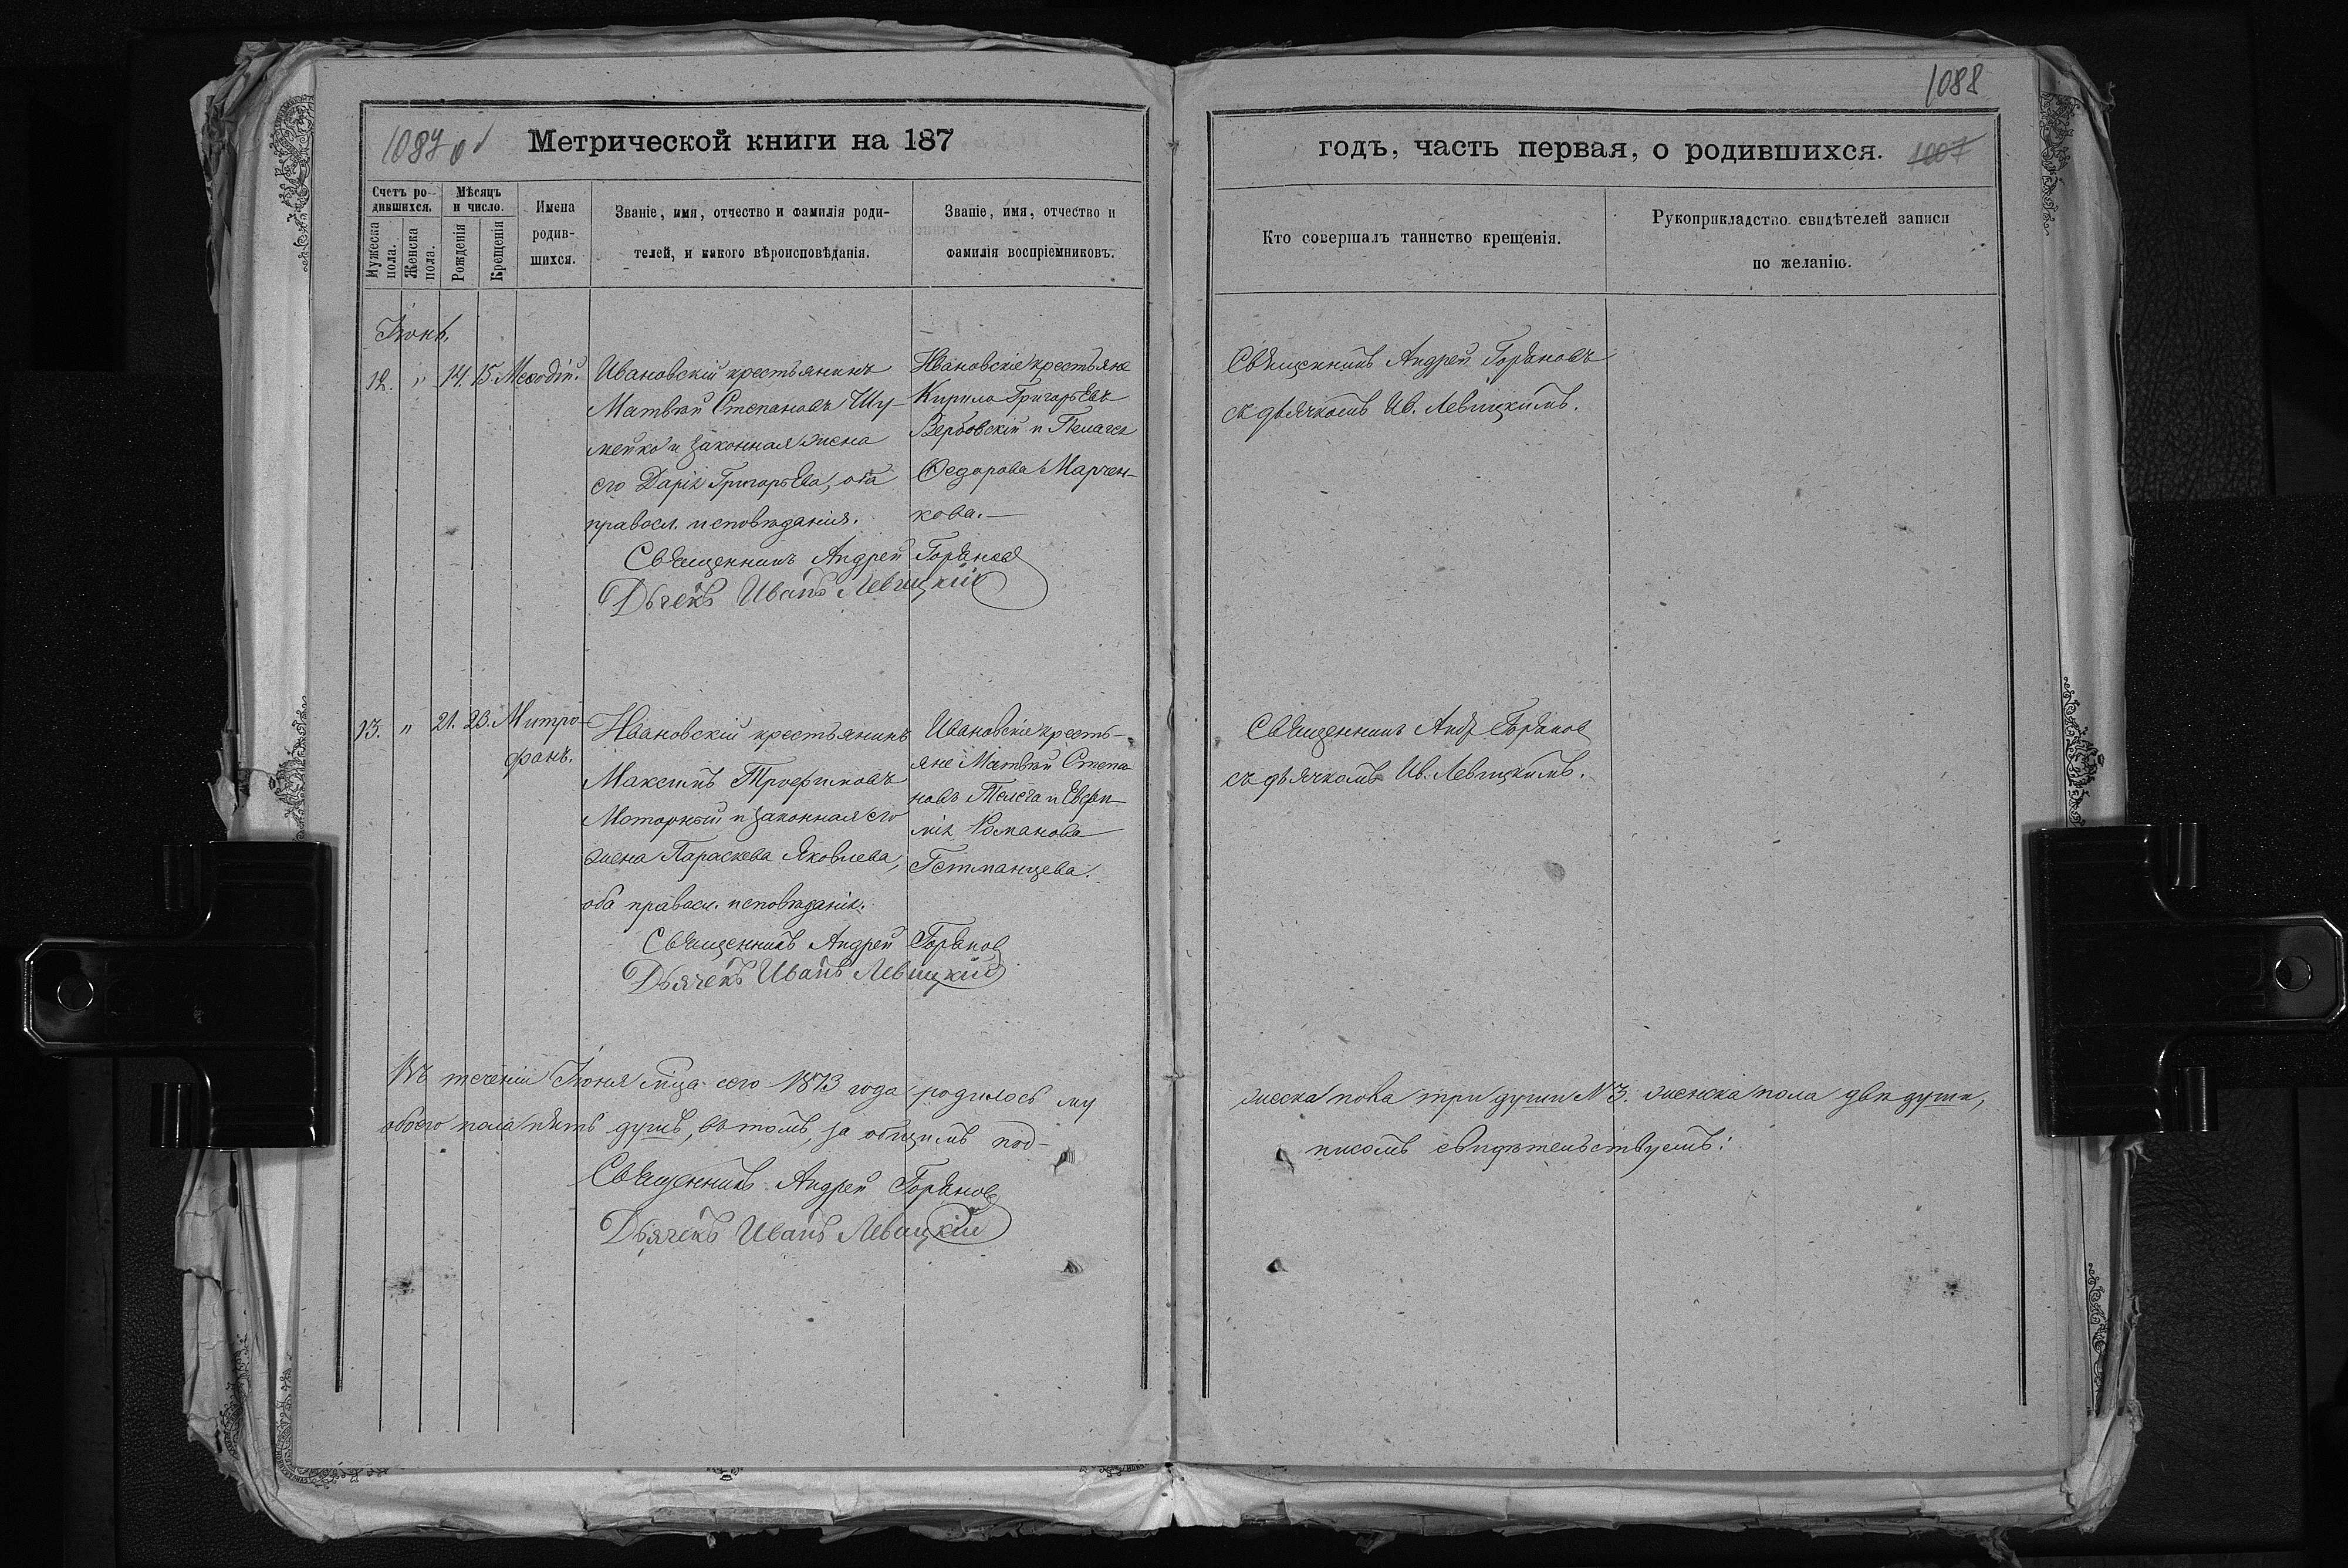 1088
1087 об
Метрической книги на 187
годъ, часть первая, о родившихся.
1087
Счетъ ро-
дившихся.
Мужеска
пола.
Женска
пола.
Мѣсяцъ
и число.
Рожденія
Крещенія
Имена
родив-
шихся.
Званіе, имя, отчество и фамилія роди-
телей, и какого вѣроисповѣданія.
Званіе, имя, отчество и
фамилія воспріемниковъ.
Кто совершалъ таинство крещенія.
Рукоприкладство свидѣтелей записи
по желанію.
Іюнь.
12. " 14. 15. Меѳодій.
Ивановскій крестьянинъ
Матвѣй Степановъ Шу-
мейко и законная жена
его Дарія Григорьева, оба
правосл. исповѣданія.
Ивановскіе крестьяне
Кирило Григорьевъ
Вербовскій и Пелагея
Ѳедорова Марчен-
кова.
Священникъ Андрей Горяновъ
съ дьячкомъ Ив. Левицкимъ.
Священникъ Андрей Горяновъ
Дьячекъ Иванъ Левицкій
13. " 21. 23. Митро-
фанъ.
Ивановскій крестьянинъ
Максимъ Трофимовъ
Моторный и законная его
жена Параскева Яковлева,
оба правосл. исповѣданія.
Ивановскіе кресть-
яне Матвѣй Степа
новъ Телега и Евфи-
мія Романова
Гетманцева.
Священникъ Андр Горянов
съ дьячкомъ Ив. Левицкимъ.
Священникъ Андрей Горянов
Дьячекъ Иванъ Левицкій
Въ теченіи Іюня м̃ца сего 1873 года родилось му
жеска пола три души №3. женска пола двѣ души,
обоего пола пять душъ, въ томъ, за общимъ под-
писомъ свидѣтельствуемъ:
Священникъ Андрей Горяновъ
Дьячекъ Иванъ Левицкій